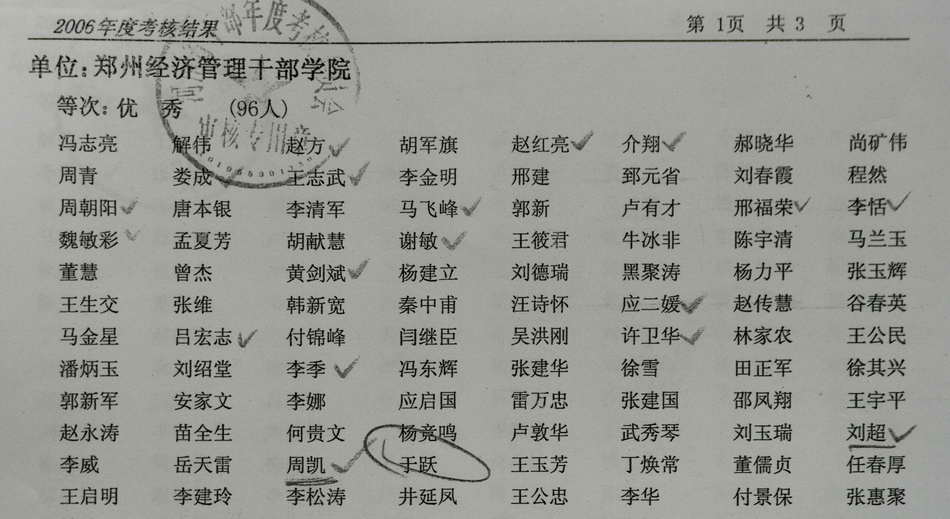 2006年度考核结果 第 1页 共 3 页
单位:郑州经济管理干部学院
部年度考核
审核专用章
等次:优 秀 (96人)
冯志亮 解伟 赵方 胡军旗 赵红亮 介翔 郝晓华 尚矿伟
周青 娄成 王志武 李金明 邢建 郅元省 刘春霞 程然
周朝阳 唐本银 李清军 马飞峰 郭新 卢有才 邢福荣 李恬
魏敏彩 孟夏芳 胡献慧 谢敏 王筱君 牛冰非 陈宇清 马兰玉
董慧 曾杰 黄剑斌 杨建立 刘德瑞 黑聚涛 杨力平 张玉辉
王生交 张维 韩新宽 秦中甫 汪诗怀 应二媛 赵传慧 谷春英
马金星 吕宏志 付锦峰 闫继臣 吴洪刚 许卫华 林家农 王公民
潘炳玉 刘绍堂 李季 冯东辉 张建华 徐雪 田正军 徐其兴
郭新军 安家文 李娜 应启国 雷万忠 张建国 邵凤翔 王宇平
赵永涛 苗全生 何贵文 杨竞鸣 卢敦华 武秀琴 刘玉瑞 刘超
李威 岳天雷 周凯 于跃 王玉芳 丁焕常 董儒贞 任春厚
王启明 李建玲 李松涛 井延凤 王公忠 李华 付景保 张惠聚